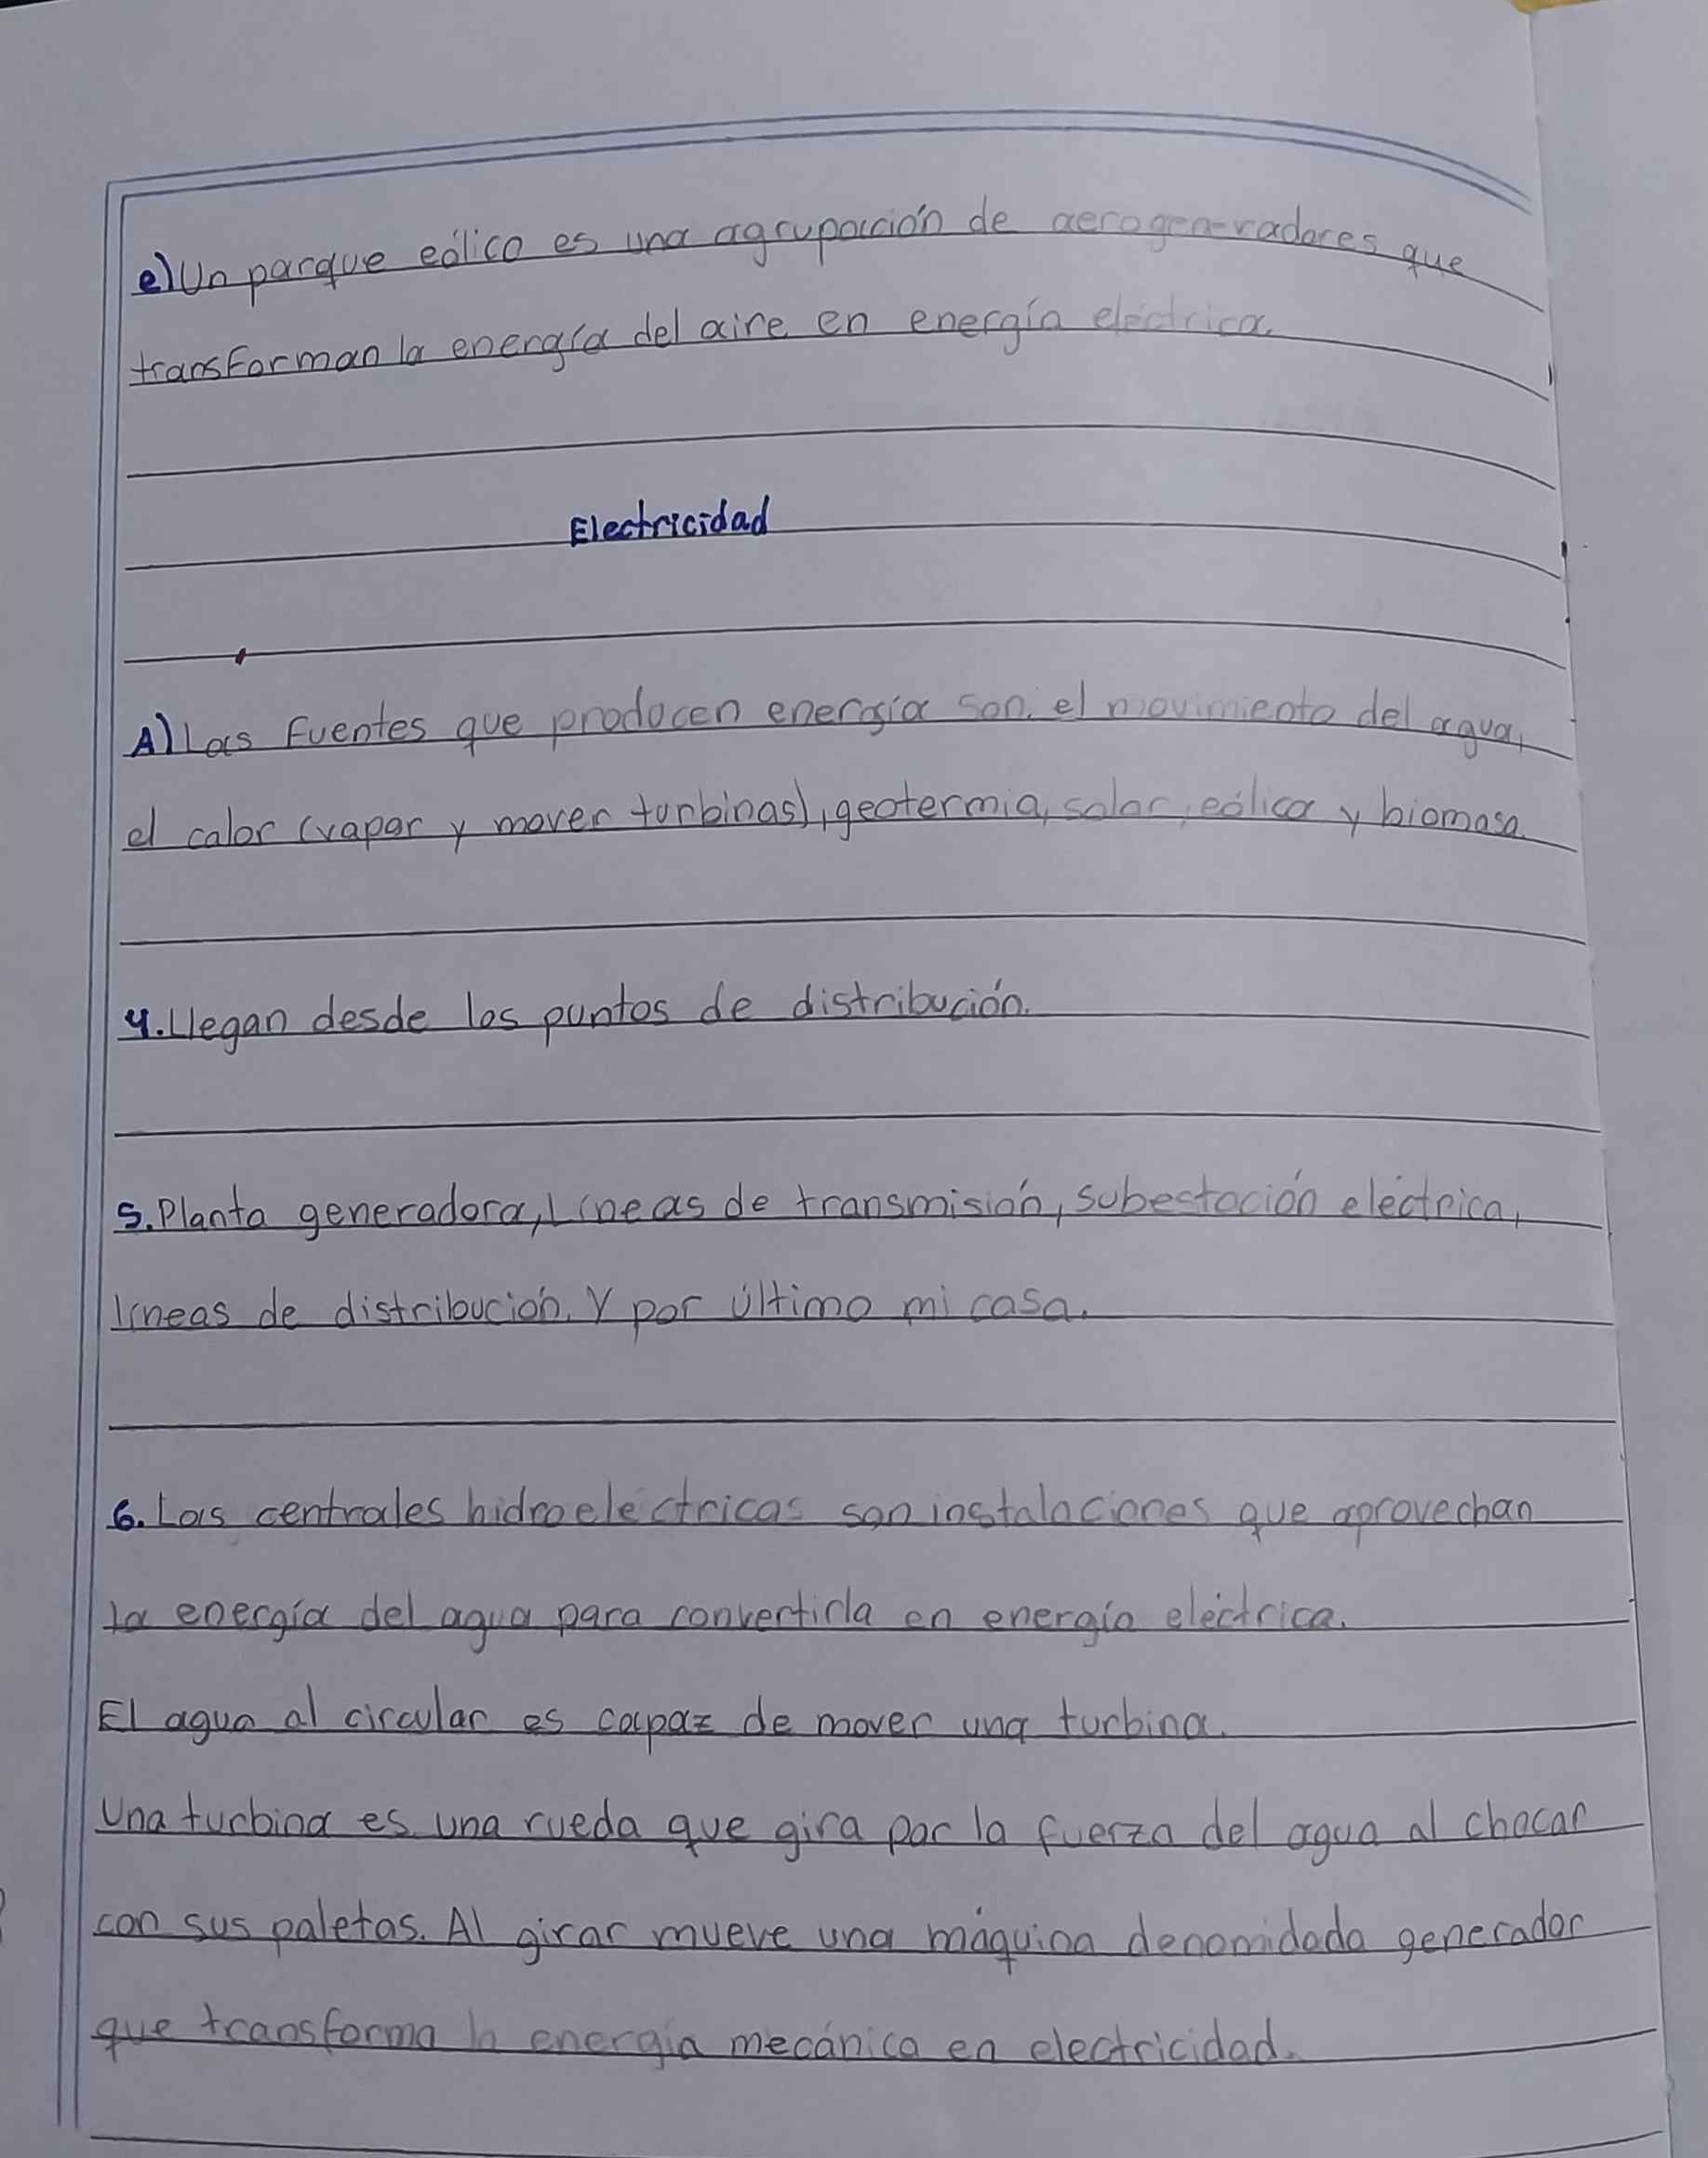 e) Un parque eólico es una agrupación de aerogen-radores que
transforman la energía del aire en energía eléctrica.
Electricidad
A) Las fuentes que producen energía son: el movimiento del agua,
el calor (vapor y mover turbinas), geotermia, solar, eólica y biomasa.
4. Llegan desde los puntos de distribución.
5. Planta generadora, Líneas de transmisión, subestación eléctrica,
líneas de distribución. Y por último mi casa.
6. Las centrales hidroeléctricas son instalaciones que aprovechan
la energía del agua para convertirla en energía eléctrica.
El agua al circular es capaz de mover una turbina.
Una turbina es una rueda que gira por la fuerza del agua al chocar
con sus paletas. Al girar mueve una máquina denomidada generador
que transforma la energía mecánica en electricidad.